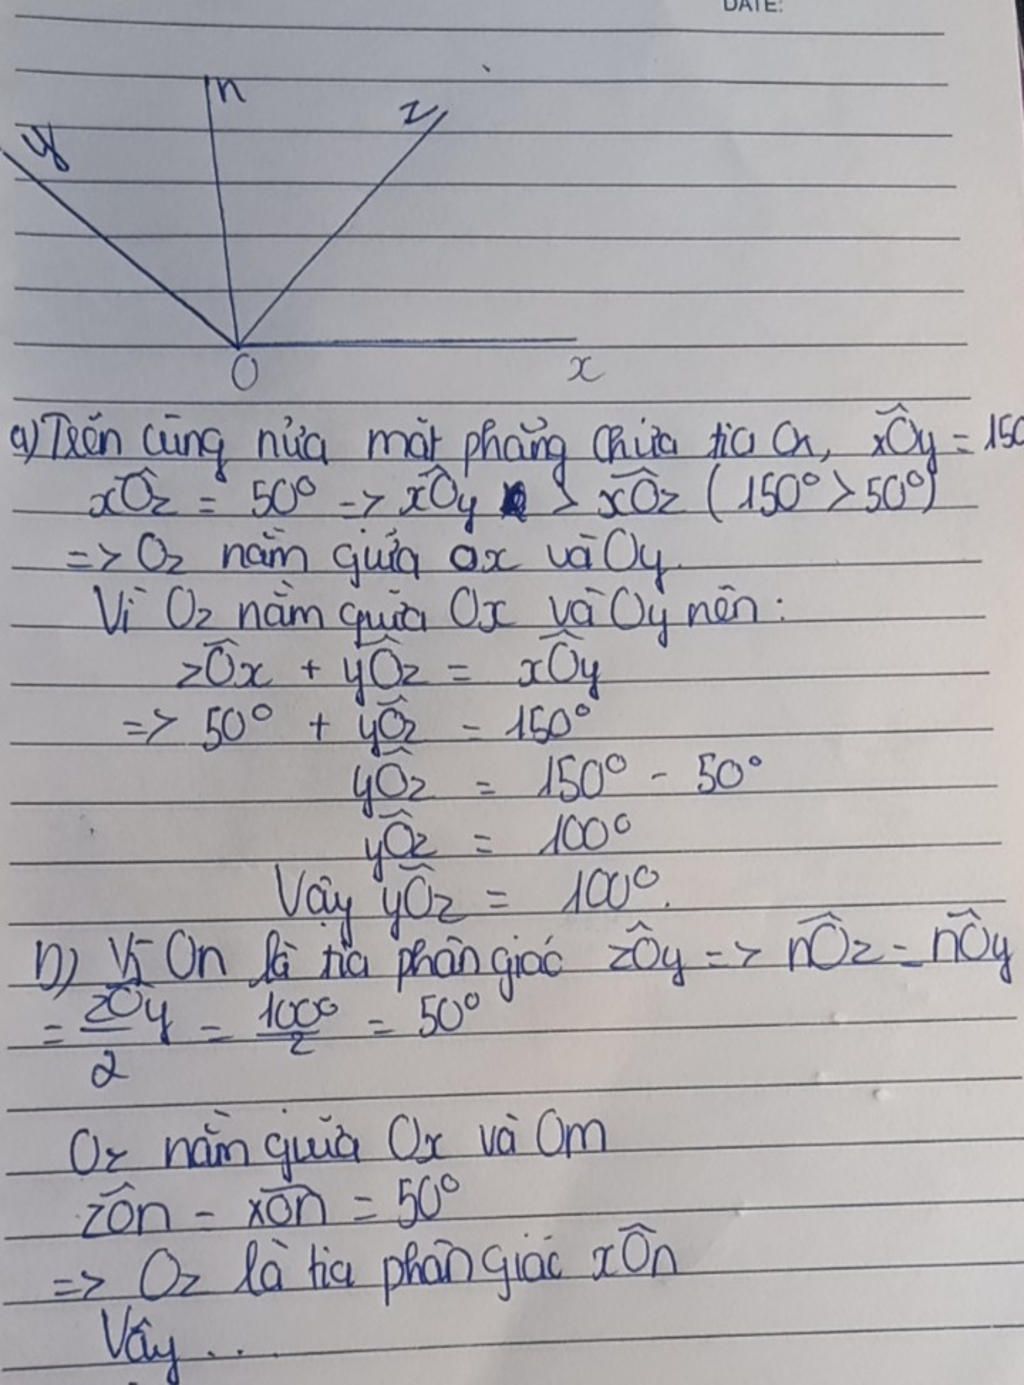 DATE:
n
z
y
O
x
a) Trên cùng nửa mặt phẳng chứa tia Ox, xÔy = 150
xÔz = 50° => xÔy > xÔz (150° > 50°)
=> Oz nằm giữa Ox và Oy.
Vì Oz nằm giữa Ox và Oy nên:
zÔx + yÔz = xÔy
=> 50° + yÔz = 150°
yÔz = 150° - 50°
yÔz = 100°
Vậy yÔz = 100°.
b) Vì On là tia phân giác zÔy => nÔz = nÔy
= zÔy/2 = 100°/2 = 50°
Oz nằm giữa Ox và Om
zÔn = xÔn = 50°
=> Oz là tia phân giác xÔn
Vậy ...